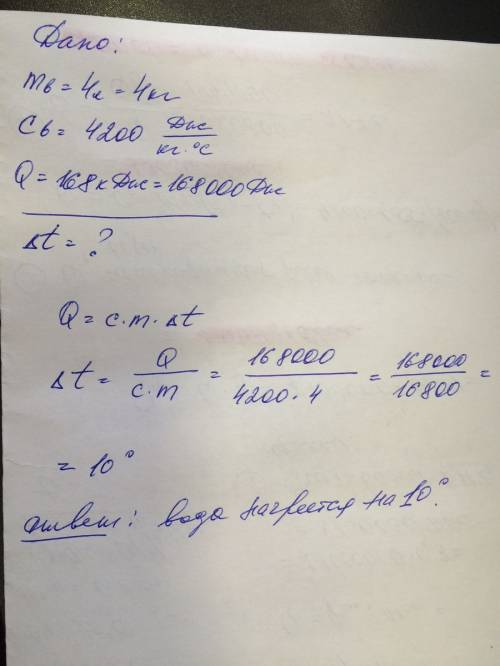 Дано:
mв = 4л = 4кг
Cв = 4200 Дж/кг·°C
Q = 168кДж = 168000Дж
Δt = ?
Q = c·m·Δt
Δt = Q/c·m = 168000/4200·4 = 168000/16800 =
= 10°
Ответ: вода нагреется на 10°.